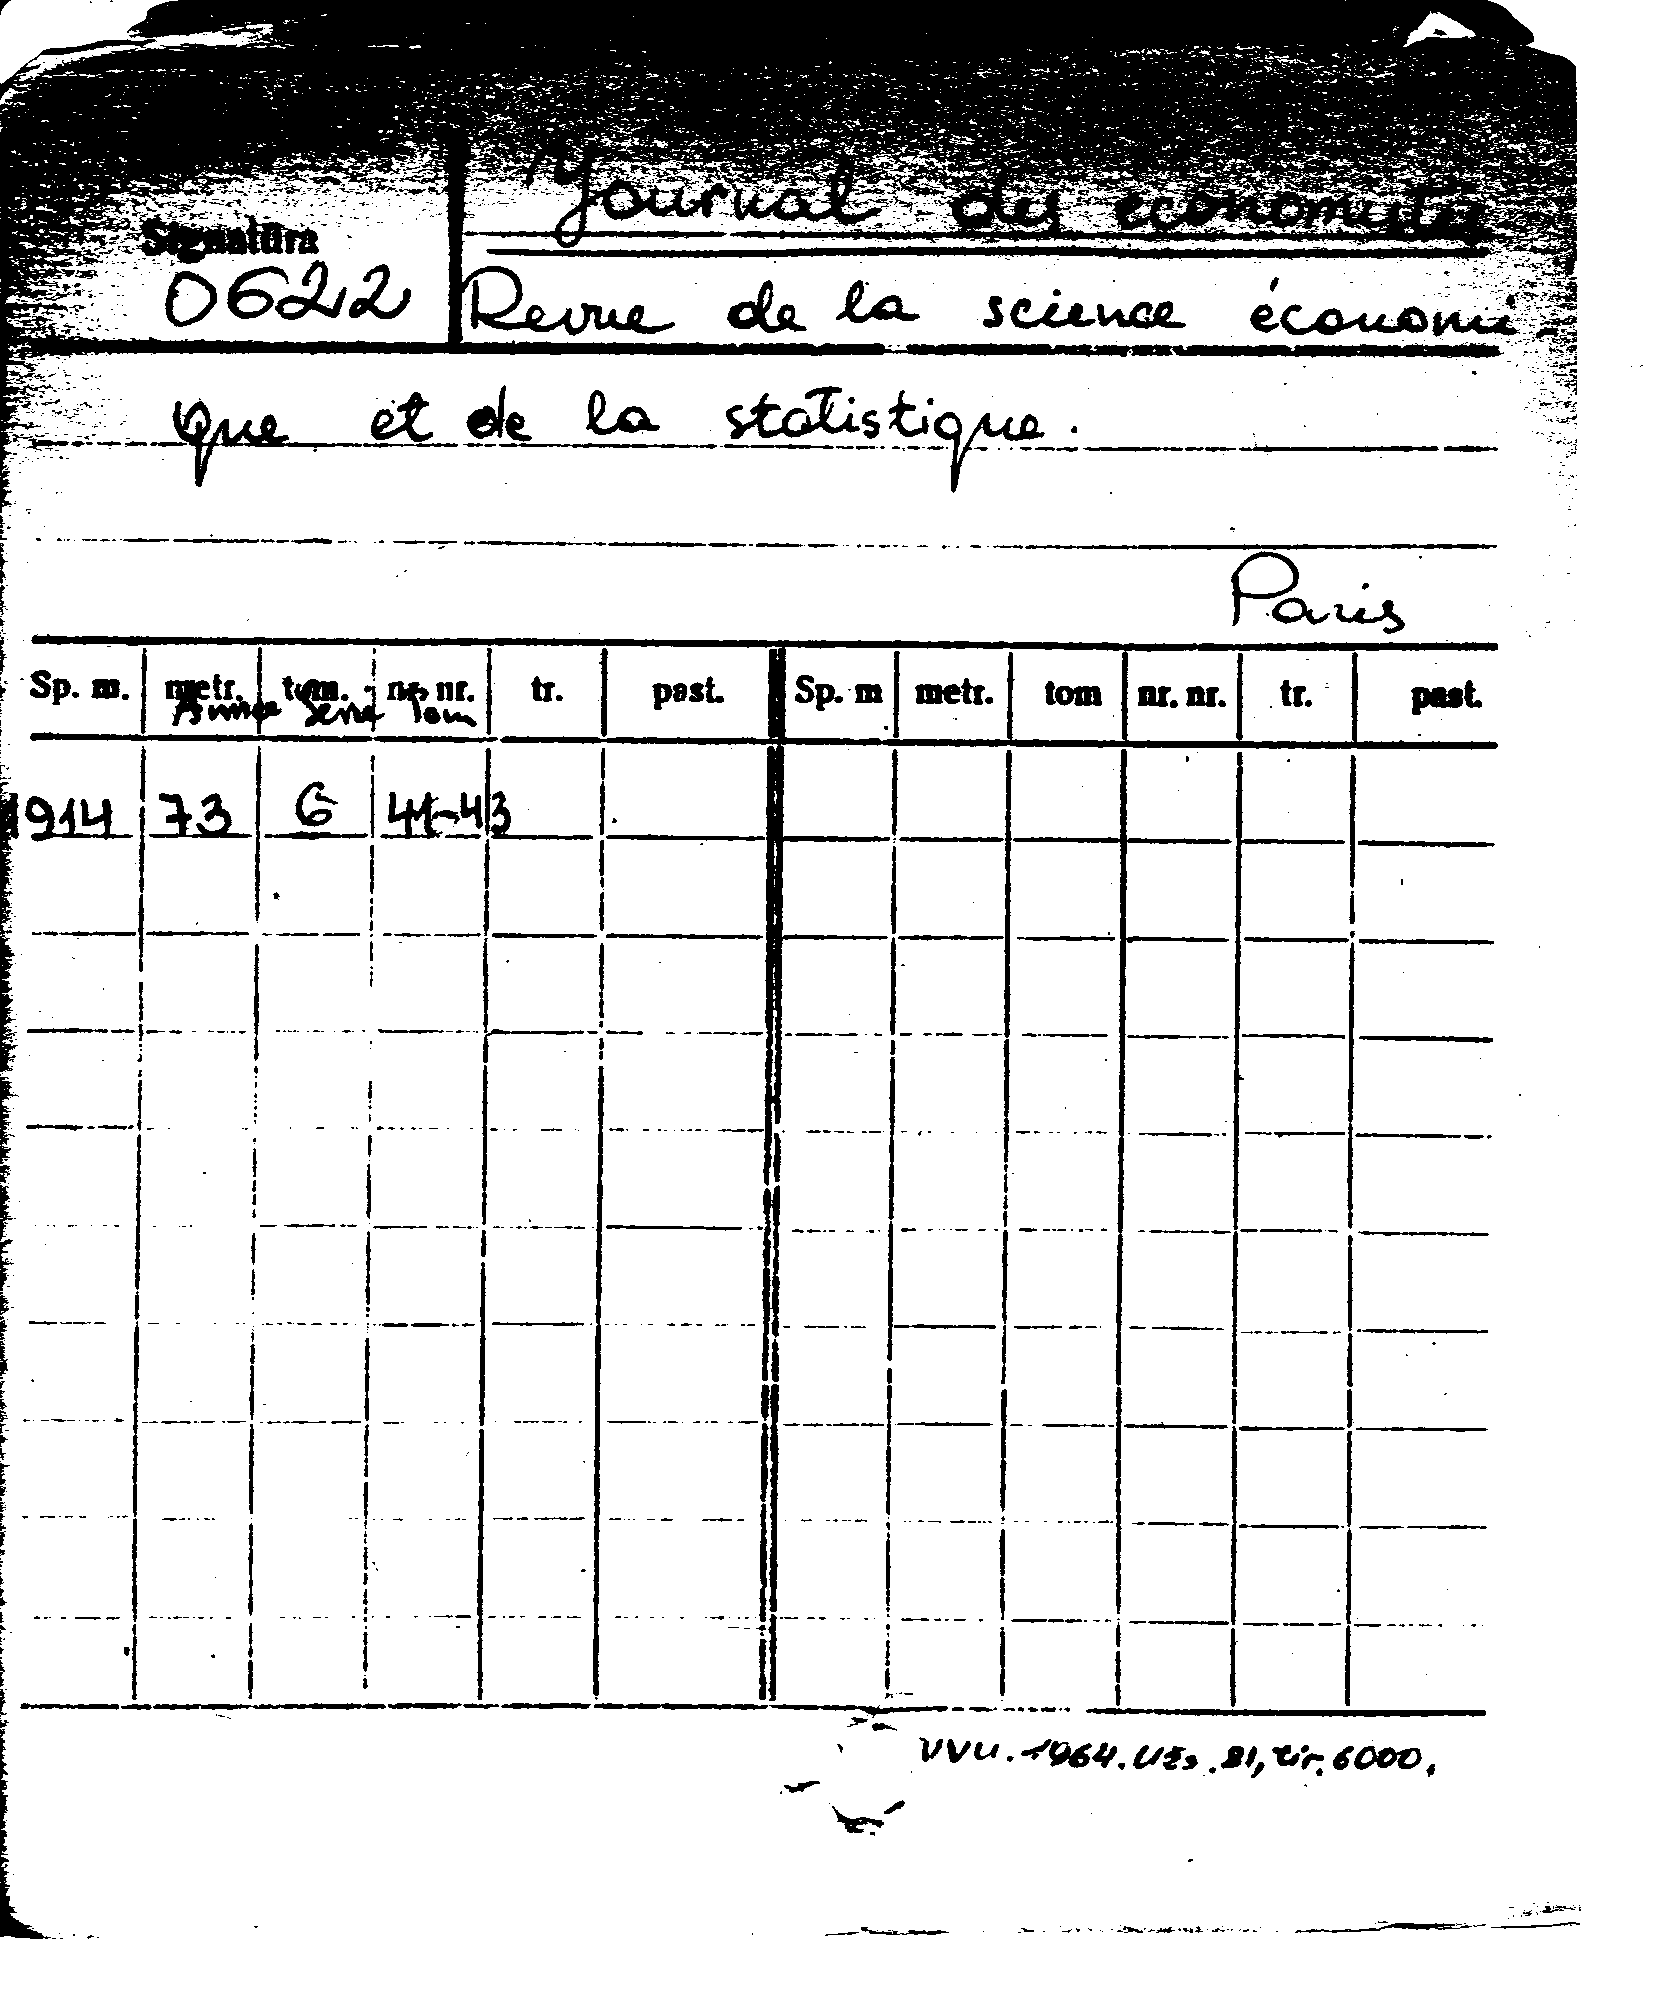 Journal des economistes
Signatūra
0622 Revue de la science économi-
que et de la statistique.
Paris
Sp. m. metr. tom. nr. nr. tr. past. Sp. m metr. tom nr. nr. tr. past.
Année Serie Tom
1914 73 6 41-43
VVU. 1964. Užs. 81, tir. 6000.